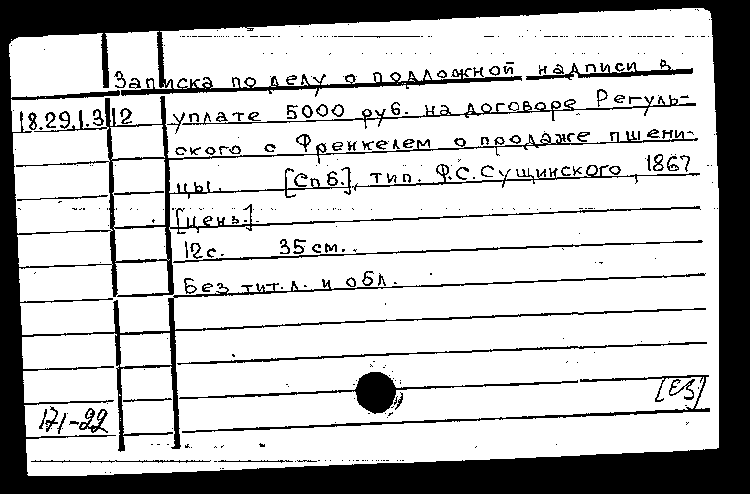 Записка по делу о подложной надписи в
18.29.1.312 уплате 5000 руб. на договоре Регуль-
ского с Френкелем о продаже пшени-
цы. [Спб.], тип. Ф.С.Сущинского, 1867
[ценз.].
12с. 35 см..
Без тит.л. и обл.
[ЕЗ]
171-22